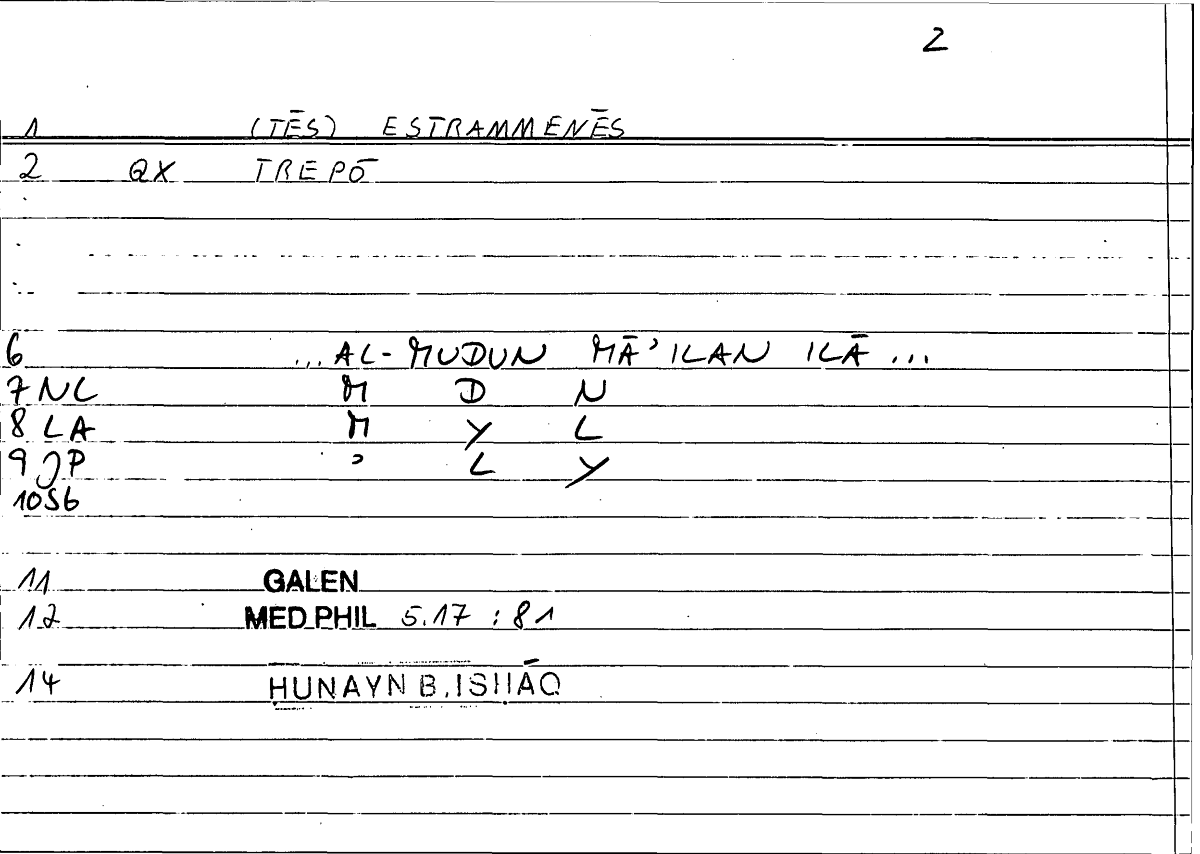 2
1 (TĒS) ESTRAMMENĒS
2 QX TREPŌ
6 ... AL-MUDUN MĀʾILAN ILĀ ...
7 NL M D N
8 LA M Y L
9 JP ʾ L Y
10 Sb
11 GALEN
12 MED.PHIL 5.17 : 81
14 ḤUNAYN B. ISḤĀQ